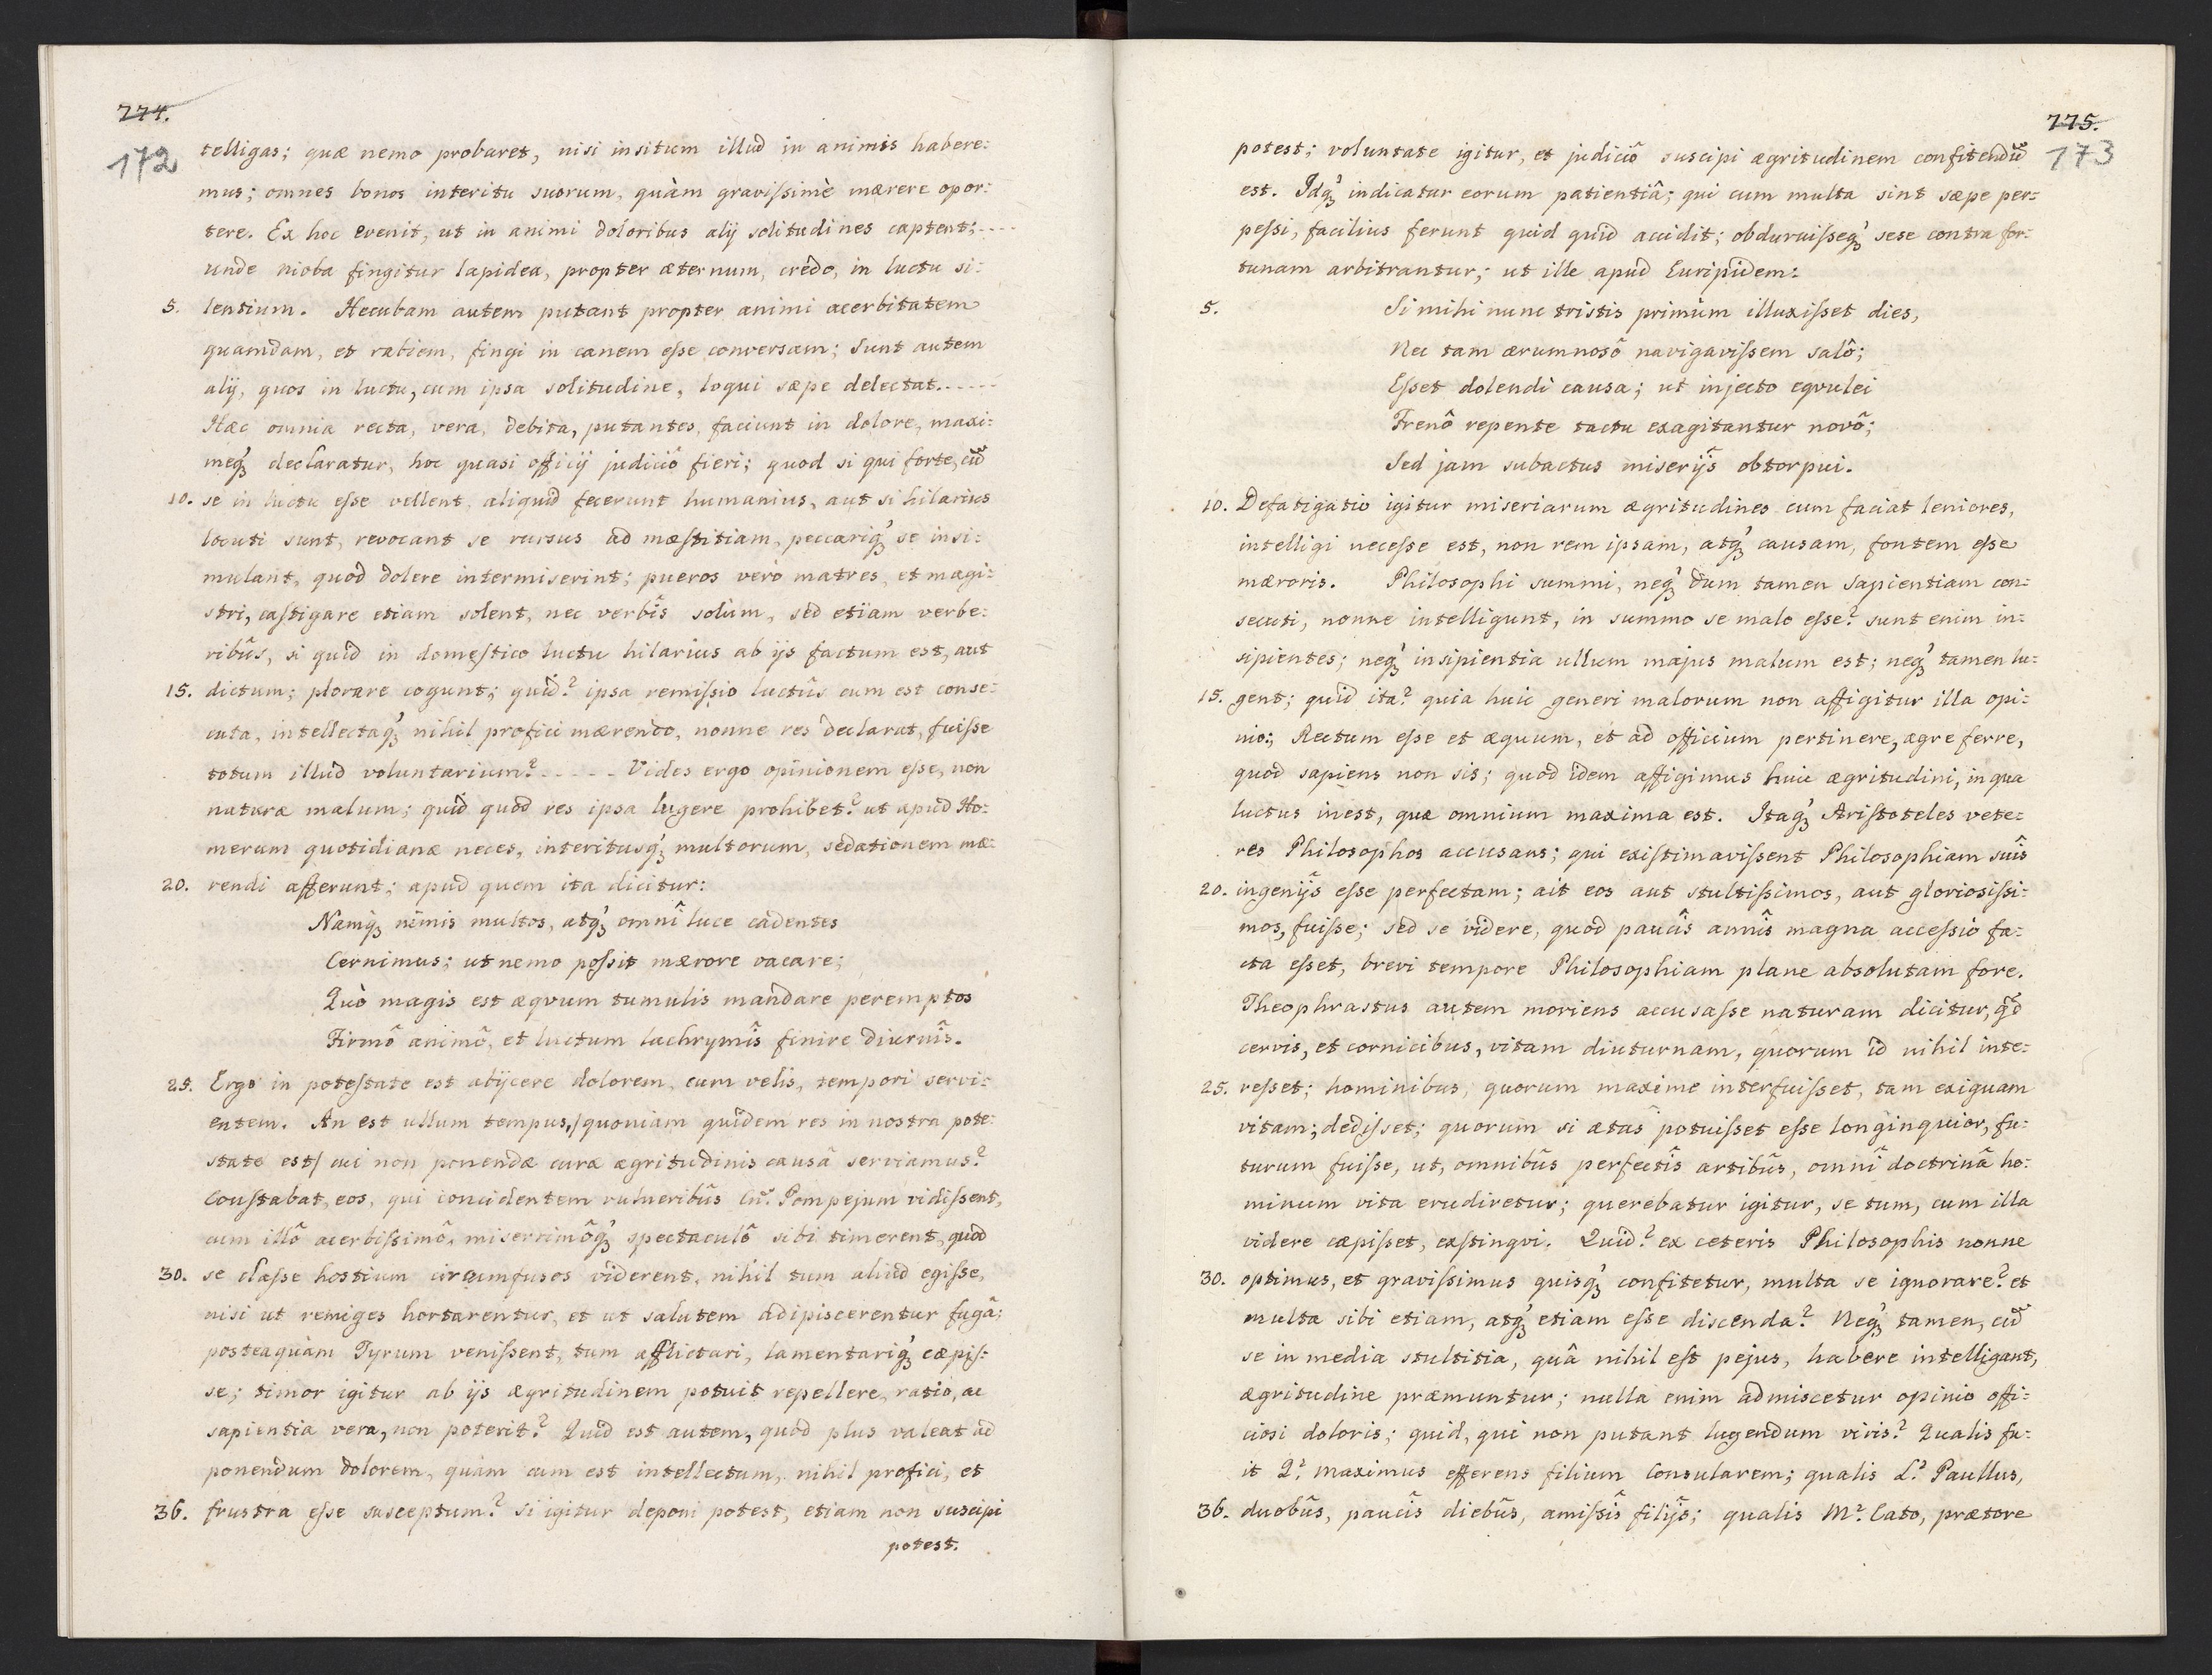 774.
172
telligas; quæ nemo probaret, nisi insitum illud in animis habere:
mus; omnes bonos interitu suorum, quàm gravissimè mærere opor:
tere. Ex hoc evenit, ut in animi doloribus alij solitudines captent; ....
unde nioba fingitur lapidea, propter æternum, credo, in luctu si:
5. lentium. Hecubam autem putant propter animi acerbitatem
quamdam, et rabiem, fingi in canem esse conversam; Sunt autem
alij, quos in luctu, cum ipsa solitudine, loqui sæpe delectat. .....
Hæc omnia recta, vera, debita, putantes, faciunt in dolore, maxi:
meq₃́ declaratur, hoc quasi officij judiciô fieri; quod si qui forte, cū
10. se in luctu esse vellent, aliquid fecerunt humanius, aut si hilarius
locuti sunt, revocant se rursus ad mæstitiam, peccariq₃́ se insi:
mulant, quod dolere intermiserint; pueros verò matres, et magi:
stri, castigare etiam solent, nec verbîs solùm, sed etiam verbe:
ribûs, si quid in domestico luctu hilarius ab ijs factum est, aut
15. dictum; plorare cogunt; quid? ipsa remissio luctûs cum est conse:
cuta, intellectaq₃́ nihil profici mærendo, nonne res declarat, fuisse
totum illud voluntarium? ..... Vides ergo opinionem esse, non
naturæ malum; quid quod res ipsa lugere prohibet? ut apud Ho:
merum quotidianæ neces, interitusq₃́ multorum, sedationem mæ:
20. rendi afferunt; apud quem ita dicitur:
Namq₃́ nimis multos, atq₃́ omnî luce cadentes
Cernimus; ut nemo possit mærore vacare;
Quò magis est æqvum tumulis mandare peremptos
Firmô animô, et luctum lachrymîs finire diurnîs.
25. Ergo in potestate est abijcere dolorem, cum velis, tempori servi:
entem. An est ullum tempus, /quoniam quidem res in nostra pote:
state est/ cui non ponendæ curæ ægritudinis causâ serviamus?
Constabat, eos, qui concidentem vulneribûs Cn. Pompejum vidissent,
cum illô acerbissimô, miserrimôq₃́ spectaculô sibi timerent, quod
30. se classe hostium circumfusos viderent, nihil tum aliud egisse,
nisi ut remiges hortarentur, et ut salutem adipiscerentur fugâ;
posteaquàm Tyrum venissent, tum afflictari, lamentariq₃́ cæpis:
se; timor igitur ab ijs ægritudinem potuit repellere, ratio, ac
sapientia vera, non poterit? Quid est autem, quod plus valeat ad
ponendum dolorem, quàm cum est intellectum, nihil profici, et
36. frustra esse susceptum? si igitur deponi potest, etiam non suscipi
potest.
775.
173
potest; voluntate igitur, et judiciô suscipi ægritudinem confitendū
est. Idq₃́ indicatur eorum patientiâ; qui cum multa sint sæpe per:
pessi, facilius ferunt quid quid accidit; obduruisseq₃́ sese contra for:
tunam arbitrantur; ut ille apud Euripidem:
5. Si mihi nunc tristis primùm illuxisset dies,
Nec tam ærumnosô navigavissem salô;
Esset dolendi causa; ut injecto eqvulei
Frenô repente tactu exagitantur novô;
Sed jam subactus miserijs obtorpui.
10. Defatigatio igitur miseriarum ægritudines cum faciat leniores,
intelligi necesse est, non rem ipsam, atq₃́ causam, fontem esse
mæroris. Philosophi summi, neq₃́ dum tamen Sapientiam con:
secuti, nonne intelligunt, in summo se malo esse? sunt enim in:
sipientes; neq₃́ insipientia ullum majus malum est; neq₃́ tamen lu:
15. gent; quid ita? quia huic generi malorum non affigitur illa opi:
nio; Rectum esse et æquum, et ad officium pertinere, ægre ferre,
quod sapiens non sis; quod idem affigimus huic ægritudini, in qua
luctus inest, quæ omnium maxima est. Itaq₃́ Aristoteles vete:
res Philosophos accusans; qui existimavissent Philosophiam suîs
20. ingenijs esse perfectam; ait eos aut stultissimos, aut gloriosissi:
mos, fuisse; sed se videre, quod paucîs annîs magna accessio fa:
cta esset, brevi tempore Philosophiam plane absolutam fore.
Theophrastus autem moriens accusasse naturam dicitur, qd̄
cervis, et cornicibus, vitam diuturnam, quorum id nihil inte:
25. resset; hominibus, quorum maxime interfuisset, tam exiguam
vitam; dedisset; quorum si ætas potuisset esse longinquior, fu:
turum fuisse, ut, omnibûs perfectîs artibûs, omnî doctrinâ ho:
minum vita erudiretur; querebatur igitur, se tum, cum illa
videre cæpisset, exstingvi. Quid? ex ceteris Philosophis nonne
30. optimus, et gravissimus quisq₃́ confitetur, multa se ignorare? et
multa sibi etiam, atq₃́ etiam esse discenda? Neq₃́ tamen, cū
se in media stultitia, quâ nihil est pejus, habere intelligant,
ægritudine præmuntur; nulla enim admiscetur opinio offi:
ciosi doloris; quid, qui non putant lugendum viris? Qualis fu:
it Q. maximus efferens filium Consularem; qualis L. Paullus,
36. duobûs, paucîs diebûs, amissîs filijs; qualis M. Cato, prætore